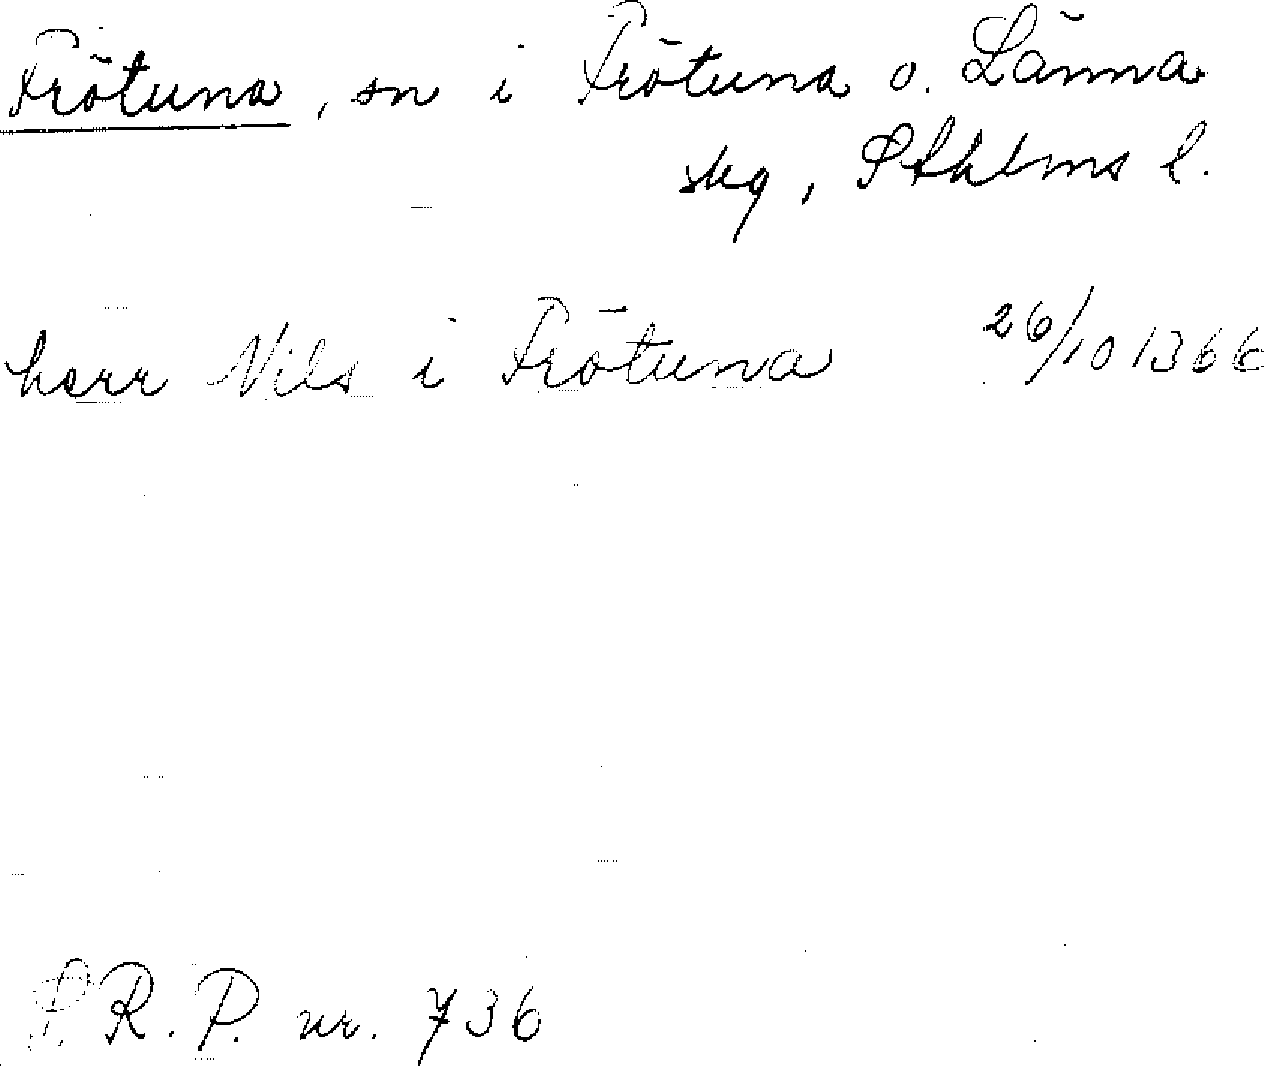 Frötuna, sn i Frötuna o. Länna
skg, Sthlms l.
herr Nils i Frötuna 26/10 1366
S.R.P. nr. 736